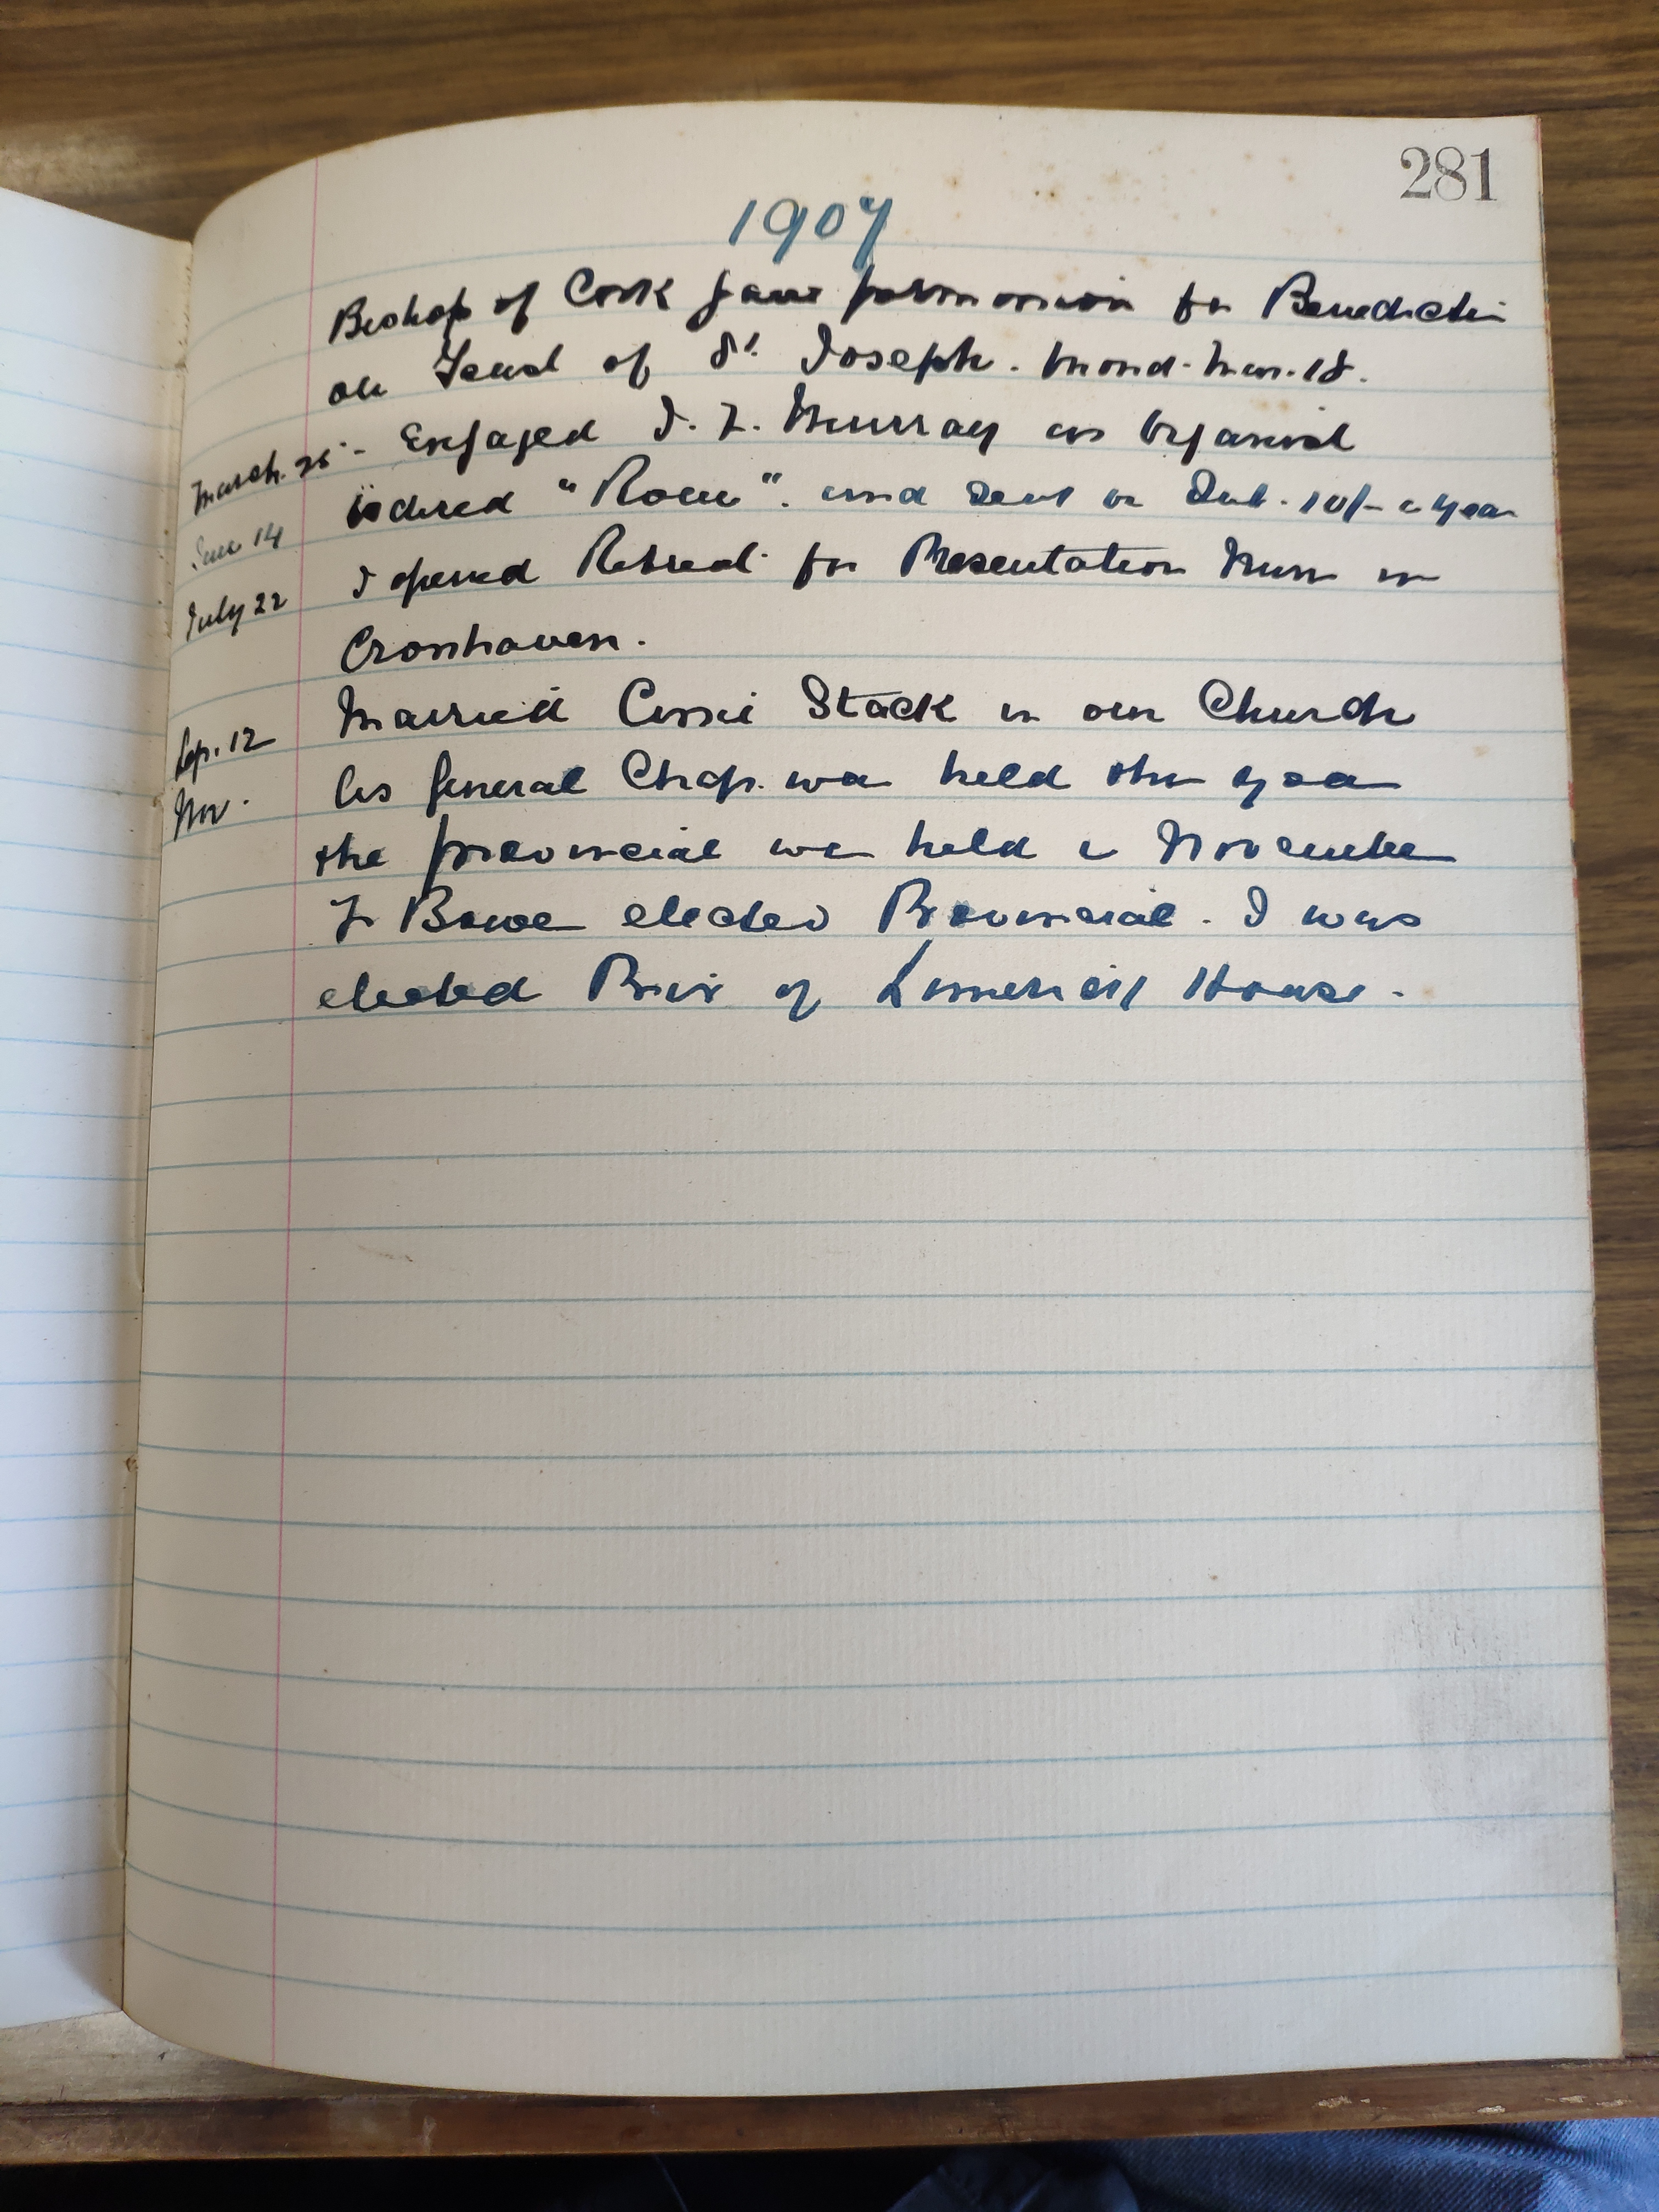 281
1907
Bishop of Cork gave permission for Benedicti
on Feast of St. Joseph. Mond. Mar. 18.
March. 25 - Engaged J. F. Murray as Organist
June 14 ordered "Rome". and sent in Sub. 10/- a year
July 22 I opened Retreat for Presentation Nuns in
Crosshaven.
Sep. 12 Married Cissie Stack in our Church
Nov. As General Chap. was held this year
the provincial was held in November
Fr Bowe elected Provincial. I was
elected Prior of Limerick House.